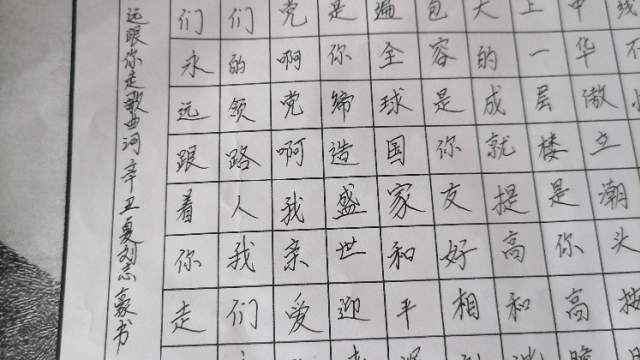 中华傲立潮头
上一层楼是你高
大的成就提高和
包容是你友好相
遍全球国家和平
是你缔造盛世迎
党啊党啊我亲爱
们的领路人我们
们永远跟着你走
远跟你走歌曲词 辛丑夏刘志豪书